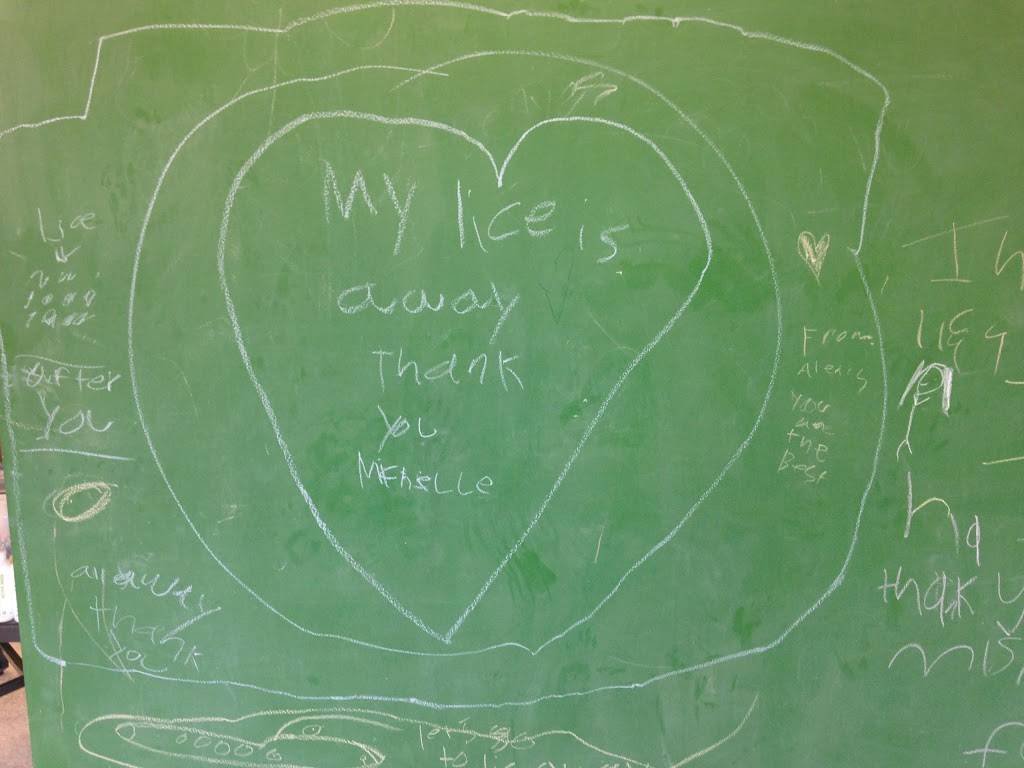 My lice is
away
Thank
you
MicheLLe
Lice
After
you
all away
thank
you
From
Alexis
You
are
the
Best
I h
ha
thak y
mis
let's go
to